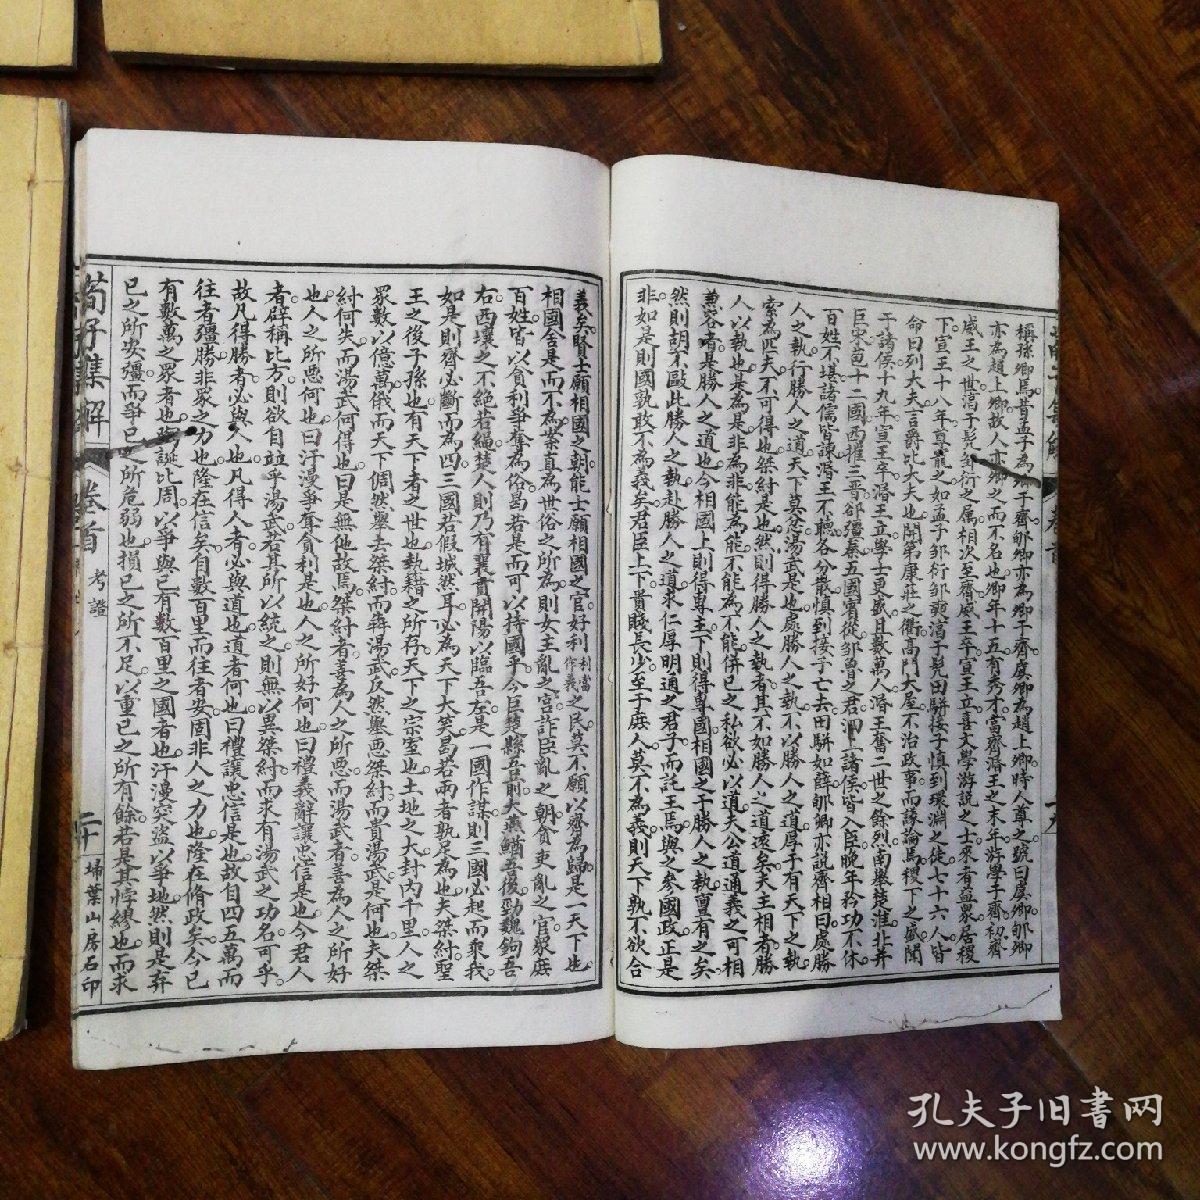 稱孫卿焉昔孟子為卿于齊郇卿亦為卿于齊虞卿為趙上卿時人尊之號曰虞卿郇卿
亦為趙上卿故人亦卿之而不名也卿年十五有秀才當齊湣王之末年游學于齊初齊
威王之世淳于髡鄒衍之屬相次至齊威王卒宣王立喜文學游說之士來者益眾居稷
下宣王十八年
命曰列大夫言爵比大夫也開第康莊之衢高門大屋不治政事而議論焉稷下之盛聞
于諸侯十九年宣王卒湣王立學士更盛且數萬人湣王奮二世之餘烈南舉楚淮北并
巨宋苞十二國西摧三晉卻彊秦五國賓從鄒魯之君泗上諸侯皆入臣晚年矜功不休
百姓不堪諸儒皆諫湣王不聽各分散慎到接子亡去田駢如薛郇卿亦說齊相曰處勝
人之埶行勝人之道天下莫忿湯武是也處勝人之埶不以勝人之道厚于有天下之埶
索為匹夫不可得也桀紂是也然則得勝人之埶者其不如勝人之道遠矣夫主相者勝
人以埶也是為是非為非能為能不能為不能併己之私欲必以道夫公道通義之可相
兼容者是勝人之道也今相國上則得專主下則得專國相國之于勝人之埶亶有之矣
然則胡不歐此勝人之埶赴勝人之道求仁厚明通之君子而託王焉與之參國政正是
非如是則國孰敢不為義矣君臣上下貴賤長少至于庶人莫不為義則天下孰不欲合
義矣賢士願相國之朝能士願相國之官好利利當作義之民莫不願以齊為歸是一天下也
相國舍是而不為案直為世俗之所為則女主亂之宮詐臣亂之朝貪吏亂之官眾庶
百姓皆以貪利爭奪為俗曷若是而可以持國乎今巨楚縣吾前大燕鰌吾後勁魏鉤吾
右西壤之不絕若繩楚人則乃有襄賁開陽以臨吾左是一國作謀則三國必起而乘我
如是則齊必斷而為四三國若假城然耳必為天下大笑曷若兩者孰足為也夫桀紂聖
王之後子孫也有天下者之世也埶籍之所存天下之宗室也土地之大封內千里人之
眾數以億萬俄而天下倜然舉去桀紂而犇湯武反然舉惡桀紂而貴湯武是何也夫桀
紂何失而湯武何得也曰是無他故焉桀紂者善為人之所惡而湯武者善為人之所好
也人之所惡何也曰汙漫爭奪貪利是也人之所好何也曰禮義辭讓忠信是也今君人
者辟稱比方則欲自竝乎湯武若其所以統之則無以異桀紂而求有湯武之功名可乎
故凡得勝者必與人也凡得人者必與道也道者何也曰禮讓忠信是也故自四五萬而
往者彊勝非眾之力也隆在信矣自數百里而往者安固非人之力也隆在脩政矣今已
有數萬之眾者也陶誕比周以爭與已有數百里之國者也汙漫突盜以爭地然則是弃
己之所安彊而爭己之所危弱也損己之所不足以重己之所有餘若是其悖繆也而求
荀子集解 卷首 考證 二十 掃葉山房石印
孔夫子旧書网
www.kongfz.com